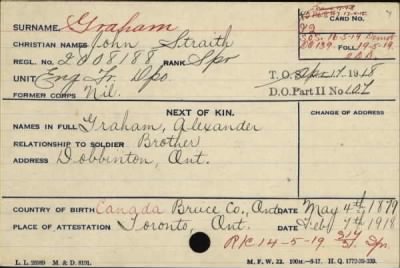 SURNAME Graham
CARD NO.
CHRISTIAN NAMES John Straith
REGL. NO. 2008188 RANK Spr
S.O.S. 16-5-19 Demob
DO 139. FOLL 19-5-19.
UNIT Eng. Tr. Dpo.
T.O.S. Apr. 17. 1918
FORMER CORPS Nil.
D.O. Part II No 107
NEXT OF KIN.
CHANGE OF ADDRESS
NAMES IN FULL Graham, Alexander
RELATIONSHIP TO SOLDIER Brother
ADDRESS Dobbinton, Ont.
COUNTRY OF BIRTH Canada Bruce Co., Ont. DATE May 4th 1879
PLACE OF ATTESTATION Toronto, Ont. DATE Feby 7th 1918
R/C 14-5-19
L. L. 26989 M. & D. 8191.
M. F. W. 22. H. Q. 1772-39-339.